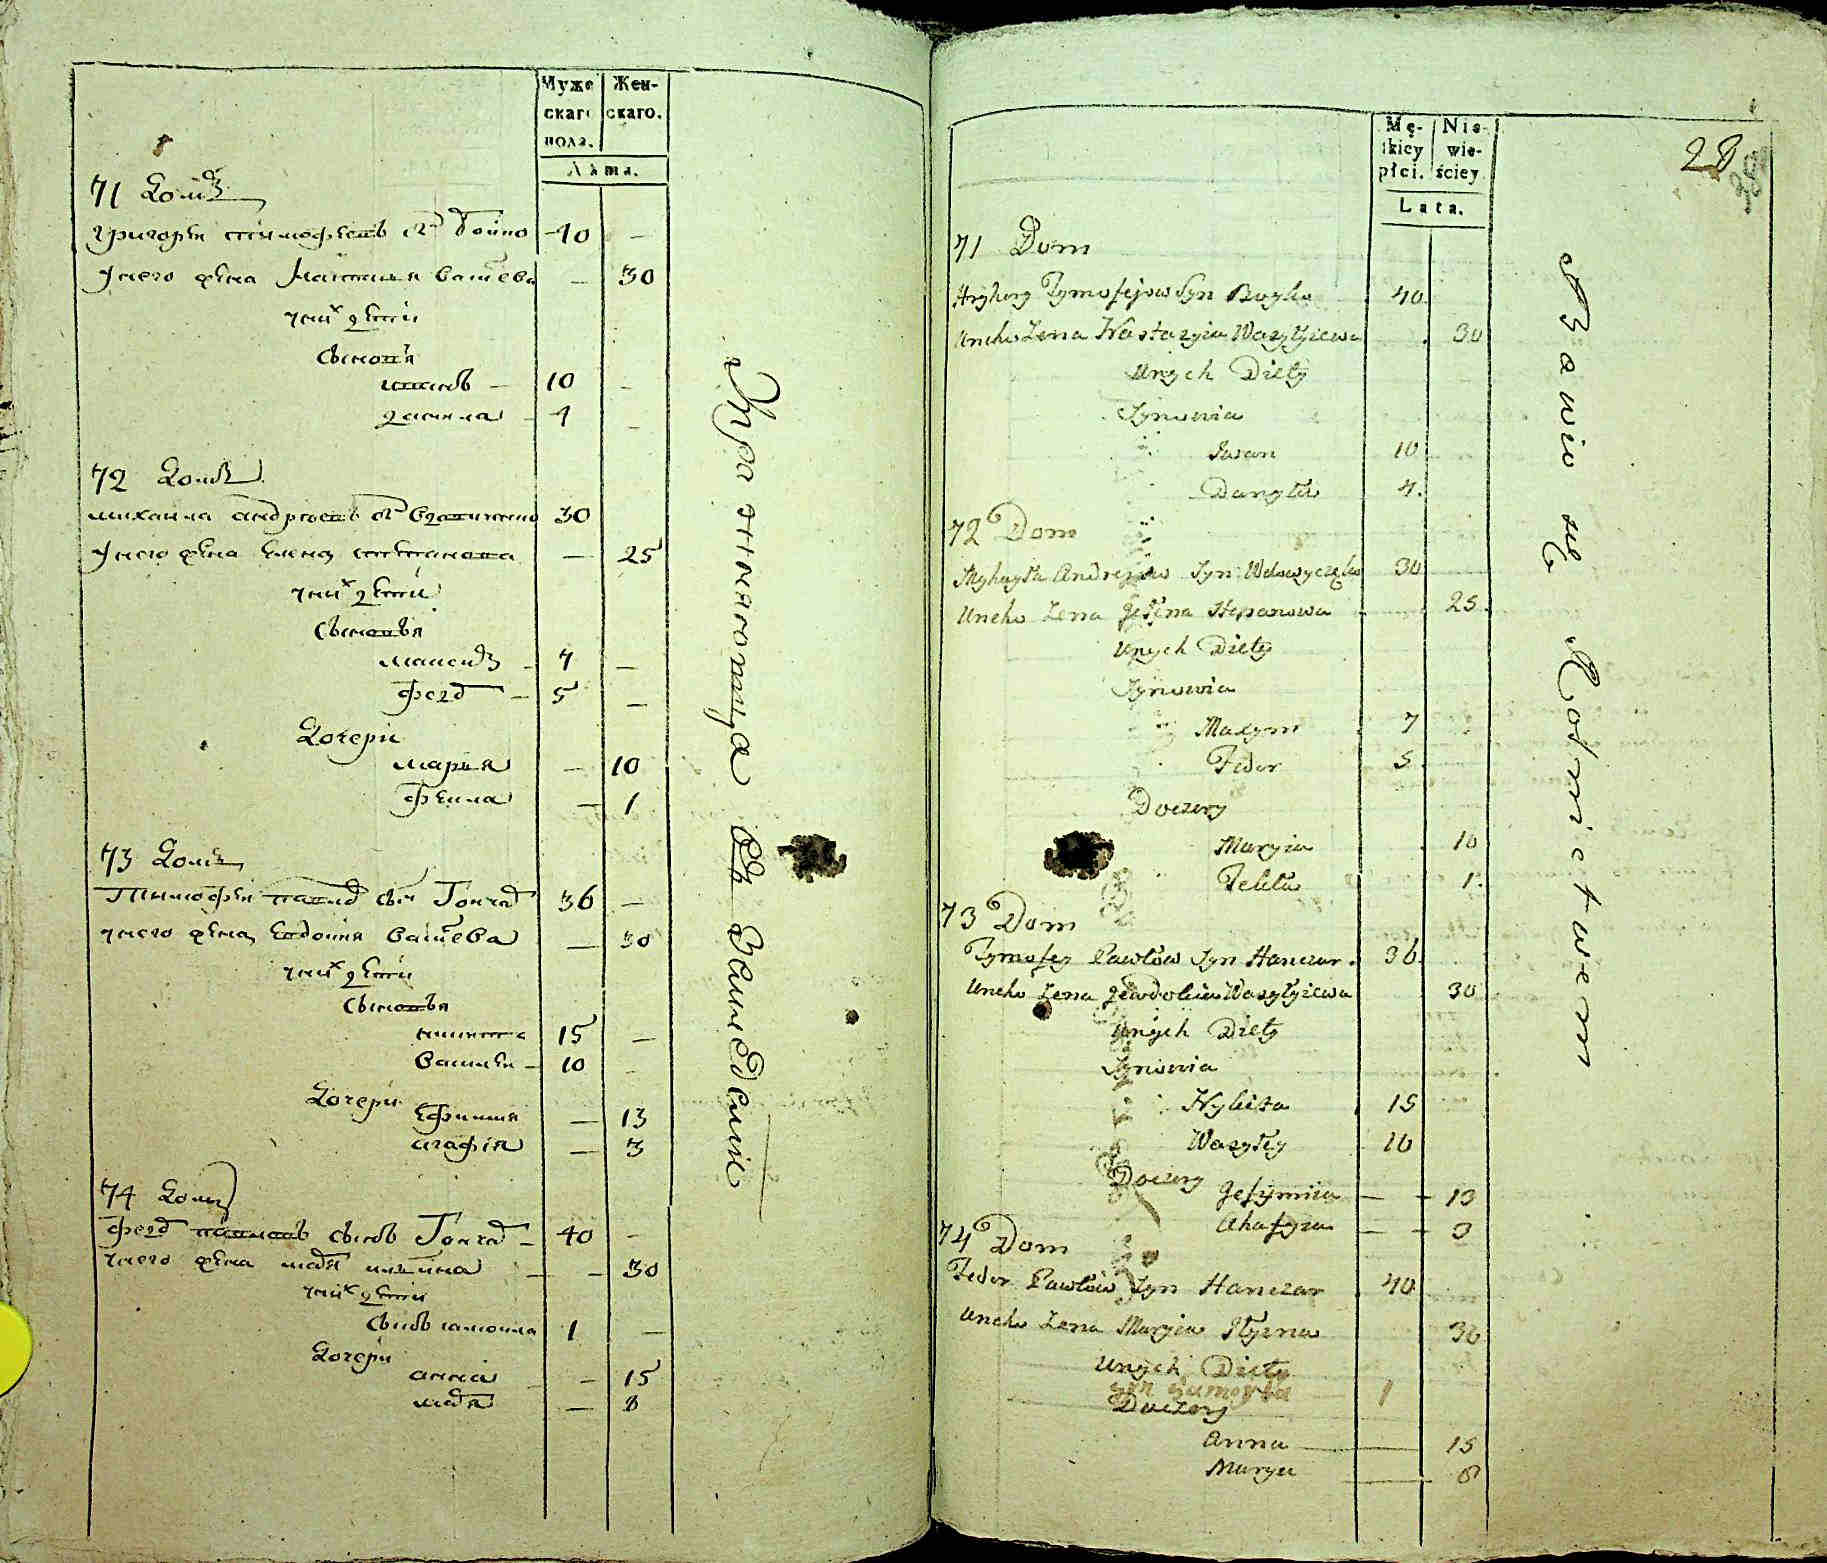 Муже
скаго
пола.
Жен-
скаго.
Лѣта.
71 Домъ
Григорѣи Тимофѣевъ сн҃ъ Бойко 40 —
У него жена Настасья Васильева — 30
У них дѣти
Сыновья
Иванъ — 10 —
Данила — 4 —
72 Домъ
Михаила Андрѣевъ сн҃ъ Вдовиченко 30
У него жена Елена Степанова — 25
У них дѣти
Сыновья
Максимъ — 7 —
Федоръ — 5 —
Дочери
Марья — 10
Фекла — 1
73 Домъ
Тимофѣй Павловъ сынъ Гончаръ 36 —
У него жена Евдокия Васильева — 30
У них дѣти
Сыновья
Никита 15 —
Василѣй — 10 —
Дочери
Ефимия — 13
Агафія — 3
74 Домъ
Федоръ Павловъ сынъ Гончаръ — 40 —
У него жена Марья Ильина — — 30
У них дѣти
Сынъ Самойла 1 —
Дочери
Анна — — 15
Марья — 8
Упражняются въ Земледелии
Mę-
skiey
płci.
Nie-
wie-
ściey
Lata.
28
71 Dom
Hryhory Tymofejow Syn Boyko 40
Uneho Żena Nastazyia Wasylyiewa 30
Unych Diety
Synowia
Iwan 10
Danyła 4.
72 Dom
Myhayła Andrejow Syn Wdowyczęko 30
Uneho Żena Jełena Stepanowa 25.
Unych Diety
Synowia
Maxym 7
Fedor 5
Doczery
Maryia 10
Fekła 1.
73 Dom
Tymofey Pawłow Syn Hanczar. 36.
Uneho Żena Jewdokia Wasyłyiewa 30
Unych Diety
Synowia
Nykita 15
Wasyłey 10
Doczery
Jefymiia — 13
Ahafyia — 3
74 Dom
Fedor Pawłow Syn Hanczar 40
Uneho Żena Maryia Iłyina 30
Unych Diety
Syn Samoyła 1
Doczery
Anna — 15
Marya — 8
Bawio się Rolnictwem